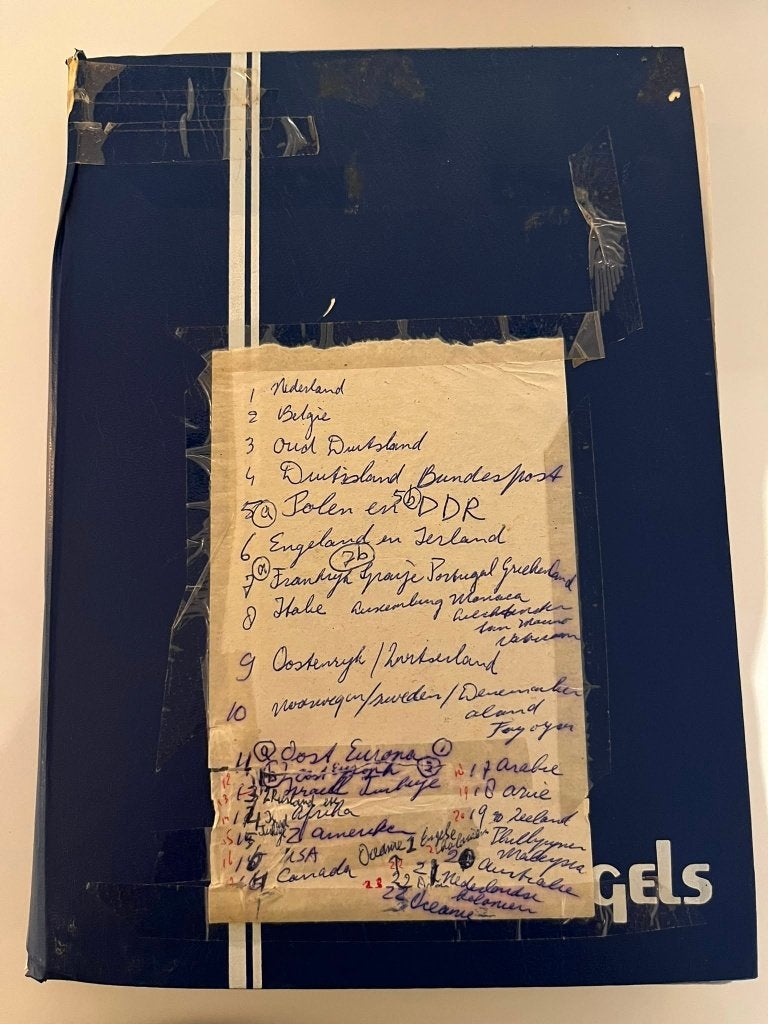 1 Nederland
2 België
3 Oud Duitsland
4 Duitsland Bundespost
5 a Polen en 5b DDR
6 Engeland en Ierland
7 a Frankrijk 7b Spanje Portugal Griekenland
8 Italie Luxemburg Monaco
Liechtenstein
San Marino
Vaticaan
9 Oostenryk / Zwitserland
10 Noorwegen / Zweden / Denemarken
aland
11 a Oost Europa 1
Oost Europa 2
Israel Turkije
Afrika
Z amerika
USA
Canada
17 arabie
18 azie
19 n Zeeland
Phillipynen
Australie
Oceanie 1
Nederlandse
Kolonien
Oceanie
GELS